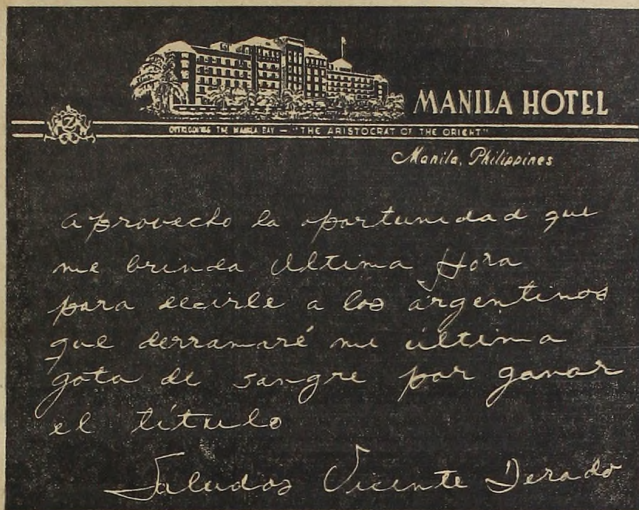 MANILA HOTEL
OVERLOOKING THE MANILA BAY — "THE ARISTOCRAT OF THE ORIENT"
Manila, Philippines
aprovecho la oportunidad que
me brinda Ultima Hora
para decirle a los argentinos
que derramaré mi última
gota de sangre por ganar
el título
Saludos Vicente Derado